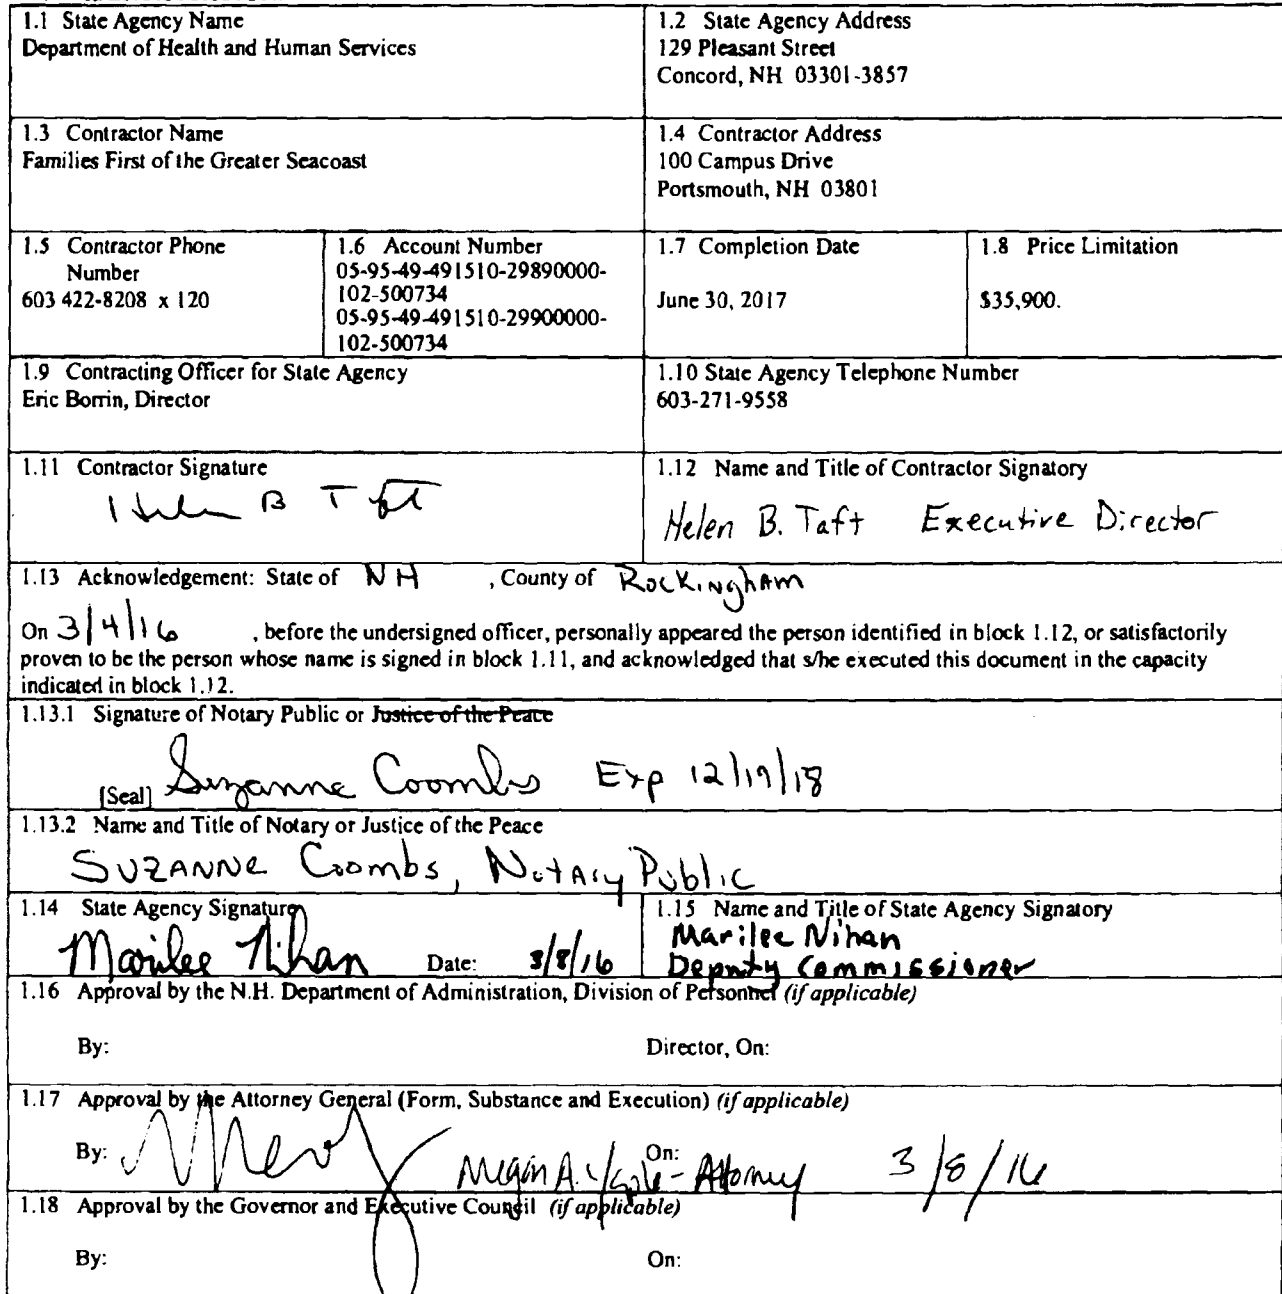 1.1 State Agency Name
Department of Health and Human Services
1.2 State Agency Address
129 Pleasant Street
Concord, NH 03301-3857
1.3 Contractor Name
Families First of the Greater Seacoast
1.4 Contractor Address
100 Campus Drive
Portsmouth, NH 03801
1.5 Contractor Phone
Number
603 422-8208 x 120
1.6 Account Number
05-95-49-491510-29890000-
102-500734
05-95-49-491510-29900000-
102-500734
1.7 Completion Date
June 30, 2017
1.8 Price Limitation
$35,900.
1.9 Contracting Officer for State Agency
Eric Borrin, Director
1.10 State Agency Telephone Number
603-271-9558
1.11 Contractor Signature
Helen B Taft
1.12 Name and Title of Contractor Signatory
Helen B. Taft Executive Director
1.13 Acknowledgement: State of NH , County of Rockingham
On 3/4/16 , before the undersigned officer, personally appeared the person identified in block 1.12, or satisfactorily
proven to be the person whose name is signed in block 1.11, and acknowledged that s/he executed this document in the capacity
indicated in block 1.12.
1.13.1 Signature of Notary Public or Justice of the Peace
[Seal] Suzanne Coombs Exp 12/19/18
1.13.2 Name and Title of Notary or Justice of the Peace
Suzanne Coombs, Notary Public
1.14 State Agency Signature
Marilee Nihan Date: 3/8/16
1.15 Name and Title of State Agency Signatory
Marilee Nihan
Deputy Commissioner
1.16 Approval by the N.H. Department of Administration, Division of Personnel (if applicable)
By: Director, On:
1.17 Approval by the Attorney General (Form, Substance and Execution) (if applicable)
By: Megan A. - Attorney On: 3/8/16
1.18 Approval by the Governor and Executive Council (if applicable)
By: On: